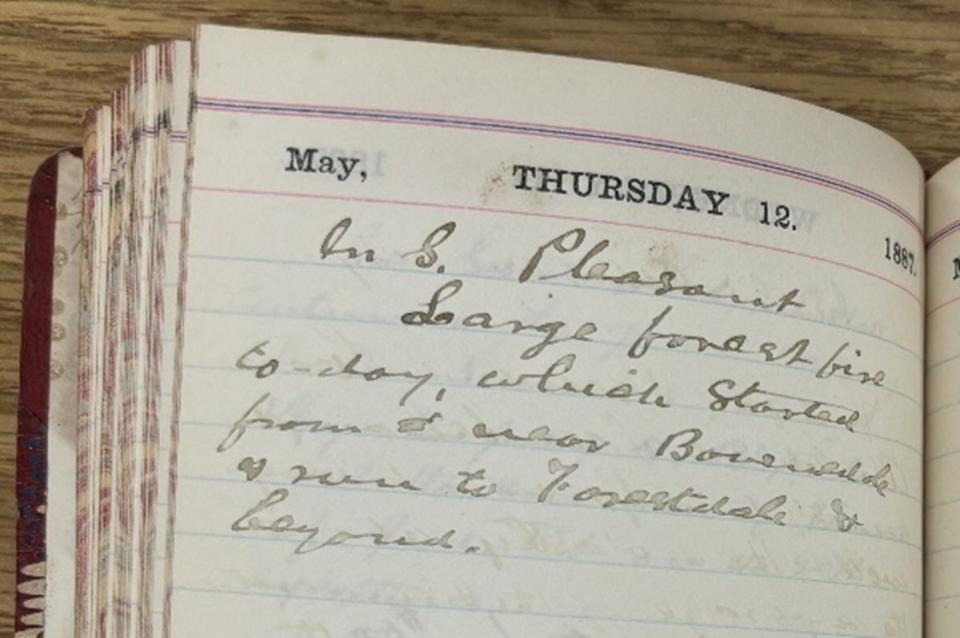 May, THURSDAY 12. 1887.
In S. Pleasant
Large forest fire
to-day, which started
from near
& run to Forestdale &
beyond.